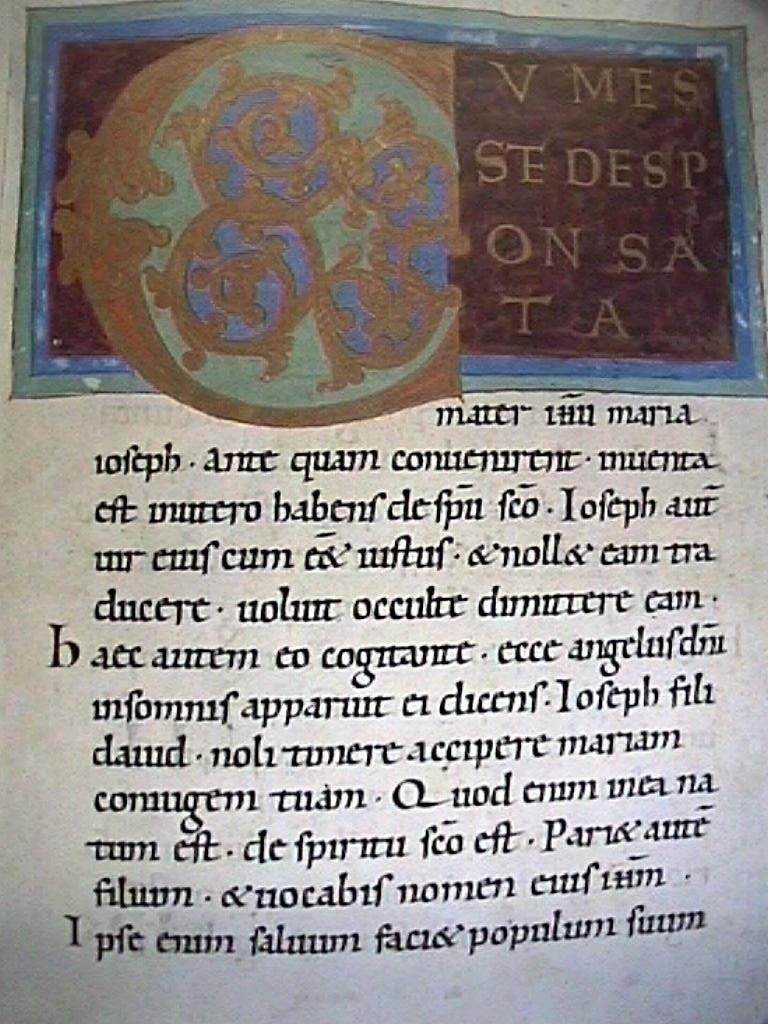 CVMES
STEDESP
ONSA
TA
mater ih̄u maria
ioseph · Ante quam conuenirent · inuenta
est inutero habens de sp̄u sc̄o · Ioseph aut̄
uir eius cum eēt iustus · &noll& eam tra
ducere · uoluit occulte dimittere eam ·
haec autem eo cogitante · ecce angelus dn̄i
insomnis apparuit ei dicens · Ioseph fili
dauid · noli timere accipere mariam
coniugem tuam · Quod enim inea na
tum est · de spiritu sc̄o est · Pari& autē
filium · &uocabis nomen eius ih̄m ·
Ipse enim saluum faci& populum suum